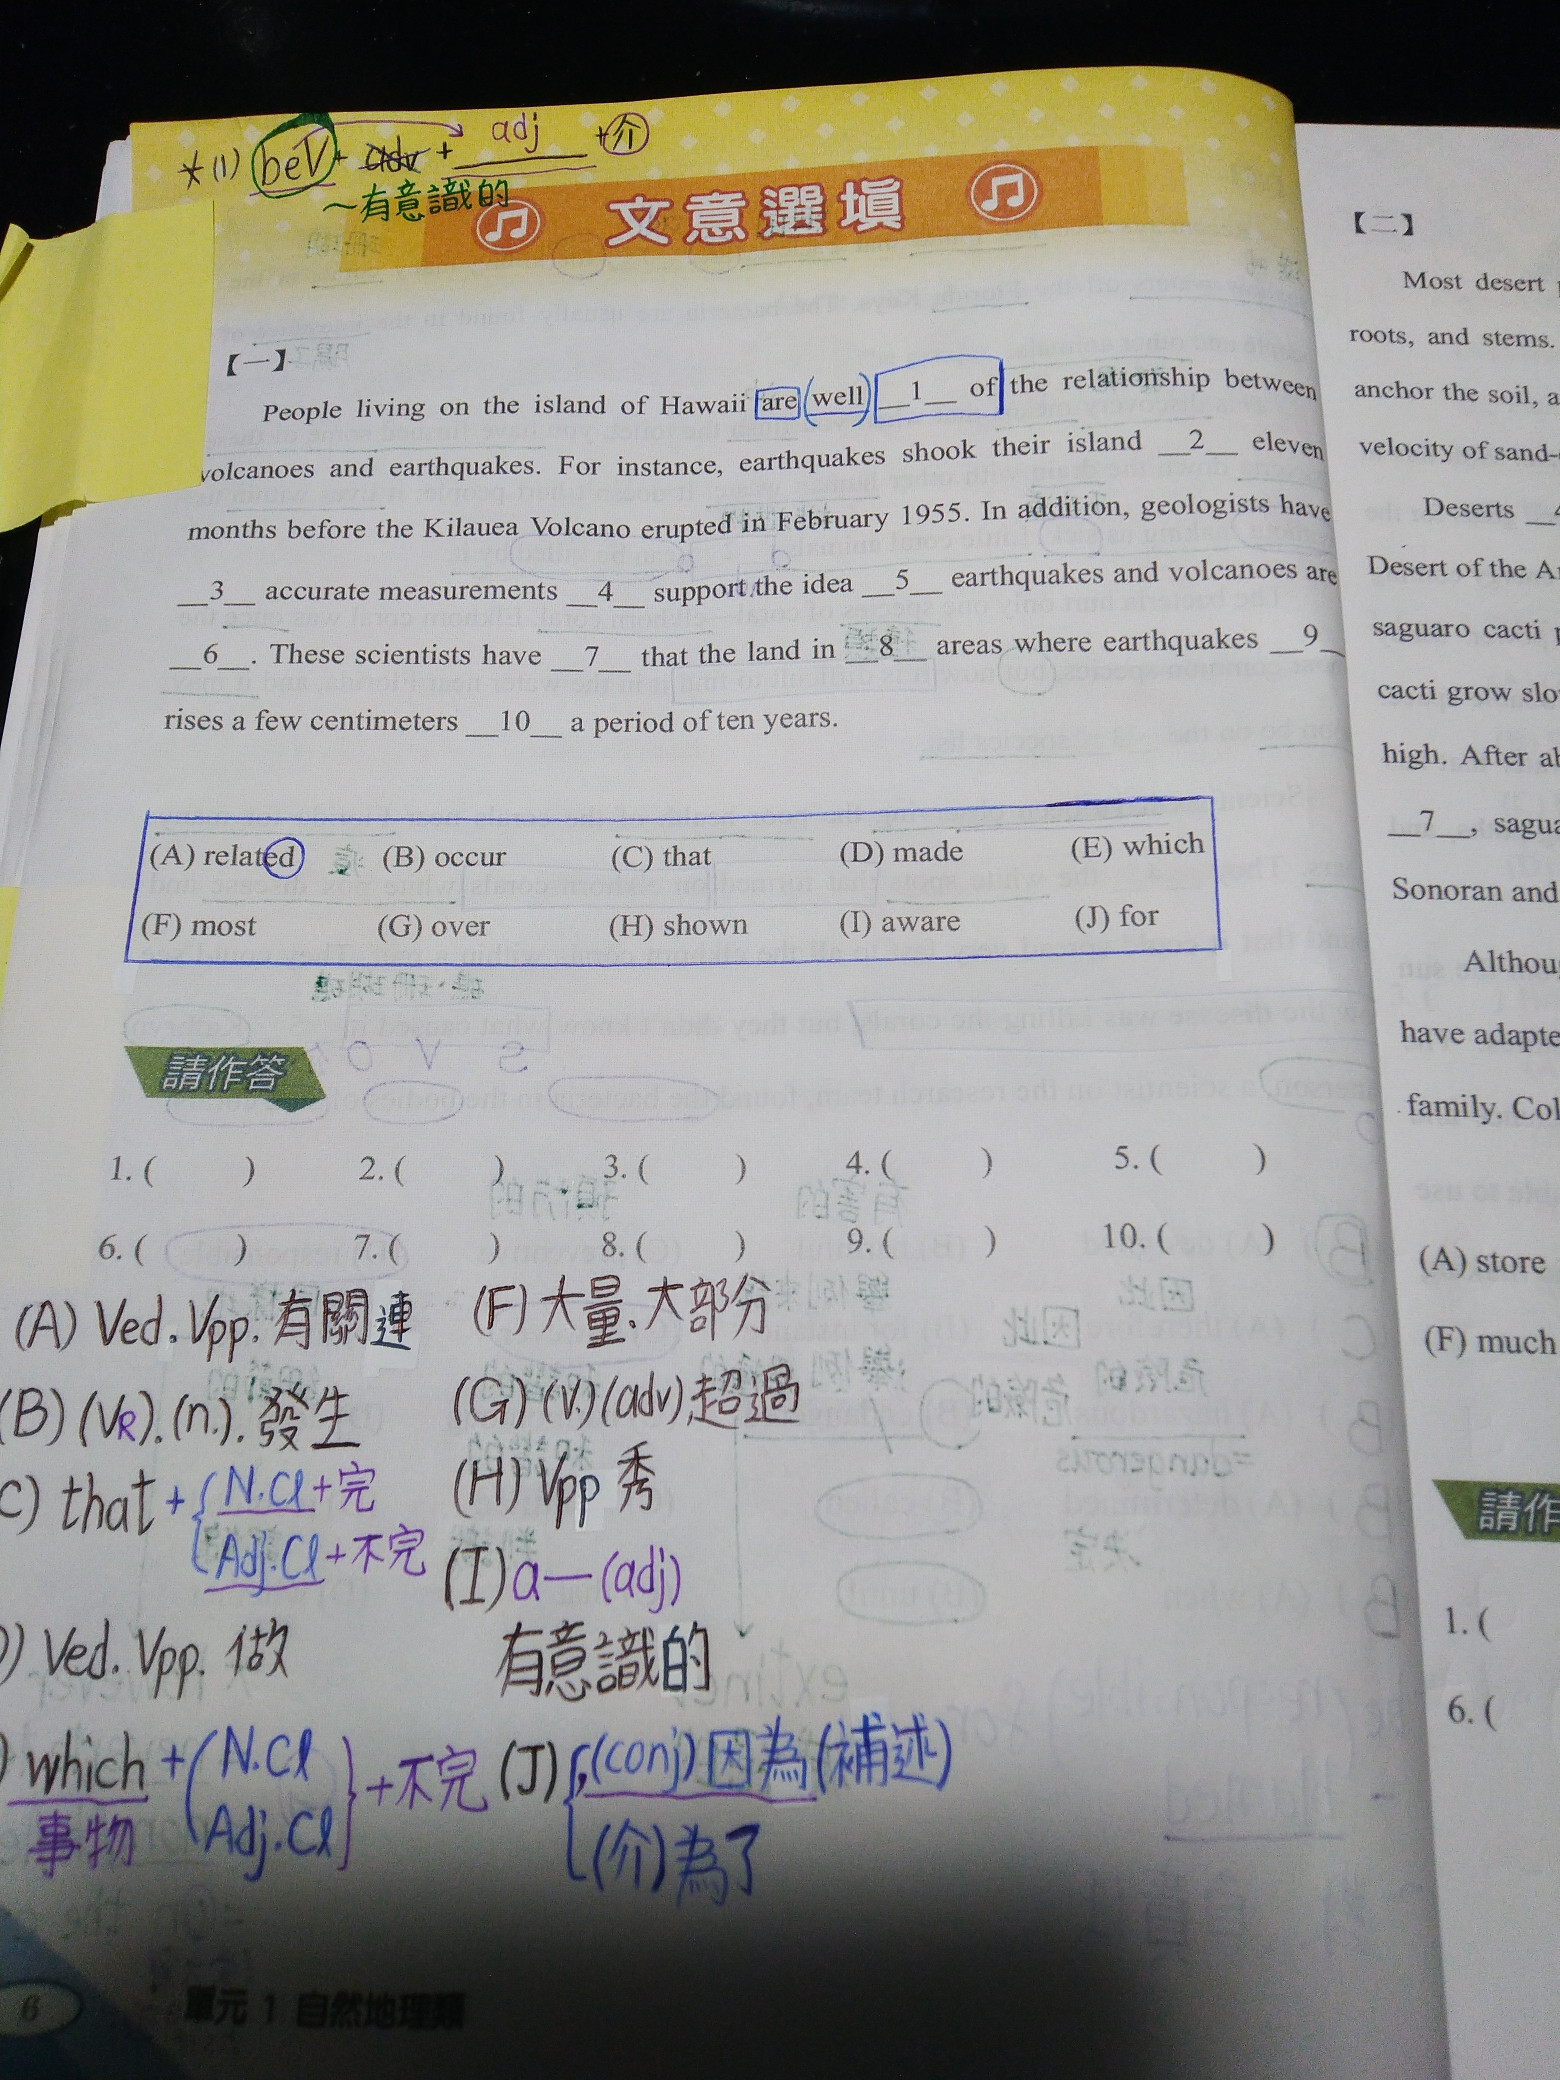 *(1) beV + adv + adj + 介
～有意識的
文意選填
【一】
People living on the island of Hawaii are (well) __1__ of the relationship between
volcanoes and earthquakes. For instance, earthquakes shook their island __2__ eleven
months before the Kilauea Volcano erupted in February 1955. In addition, geologists have
__3__ accurate measurements __4__ support the idea __5__ earthquakes and volcanoes are
__6__. These scientists have __7__ that the land in __8__ areas where earthquakes __9__
rises a few centimeters __10__ a period of ten years.
(A) related (B) occur (C) that (D) made (E) which
(F) most (G) over (H) shown (I) aware (J) for
請作答
1. ( ) 2. ( ) 3. ( ) 4. ( ) 5. ( )
6. ( ) 7. ( ) 8. ( ) 9. ( ) 10. ( )
(A) Ved. Vpp. 有關連
(B) (VR). (n.). 發生
C) that + { N.Cl + 完
Adj.Cl + 不完
) Ved. Vpp. 做
) which + ( N.Cl
Adj.Cl } + 不完
事物
(F) 大量、大部分
(G) (v.) (adv) 超過
(H) Vpp 秀
(I) a— (adj)
有意識的
(J) { , (conj) 因為 (補述)
(介) 為了
6
單元 1 自然地理類
【二】
Most desert
roots, and stems.
anchor the soil, a
velocity of sand-
Deserts __4
Desert of the A
saguaro cacti
cacti grow slo
high. After
__7__, sagua
Sonoran and
Althou
have adapte
family. Col
(A) store
(F) much
請作
1. (
6. (